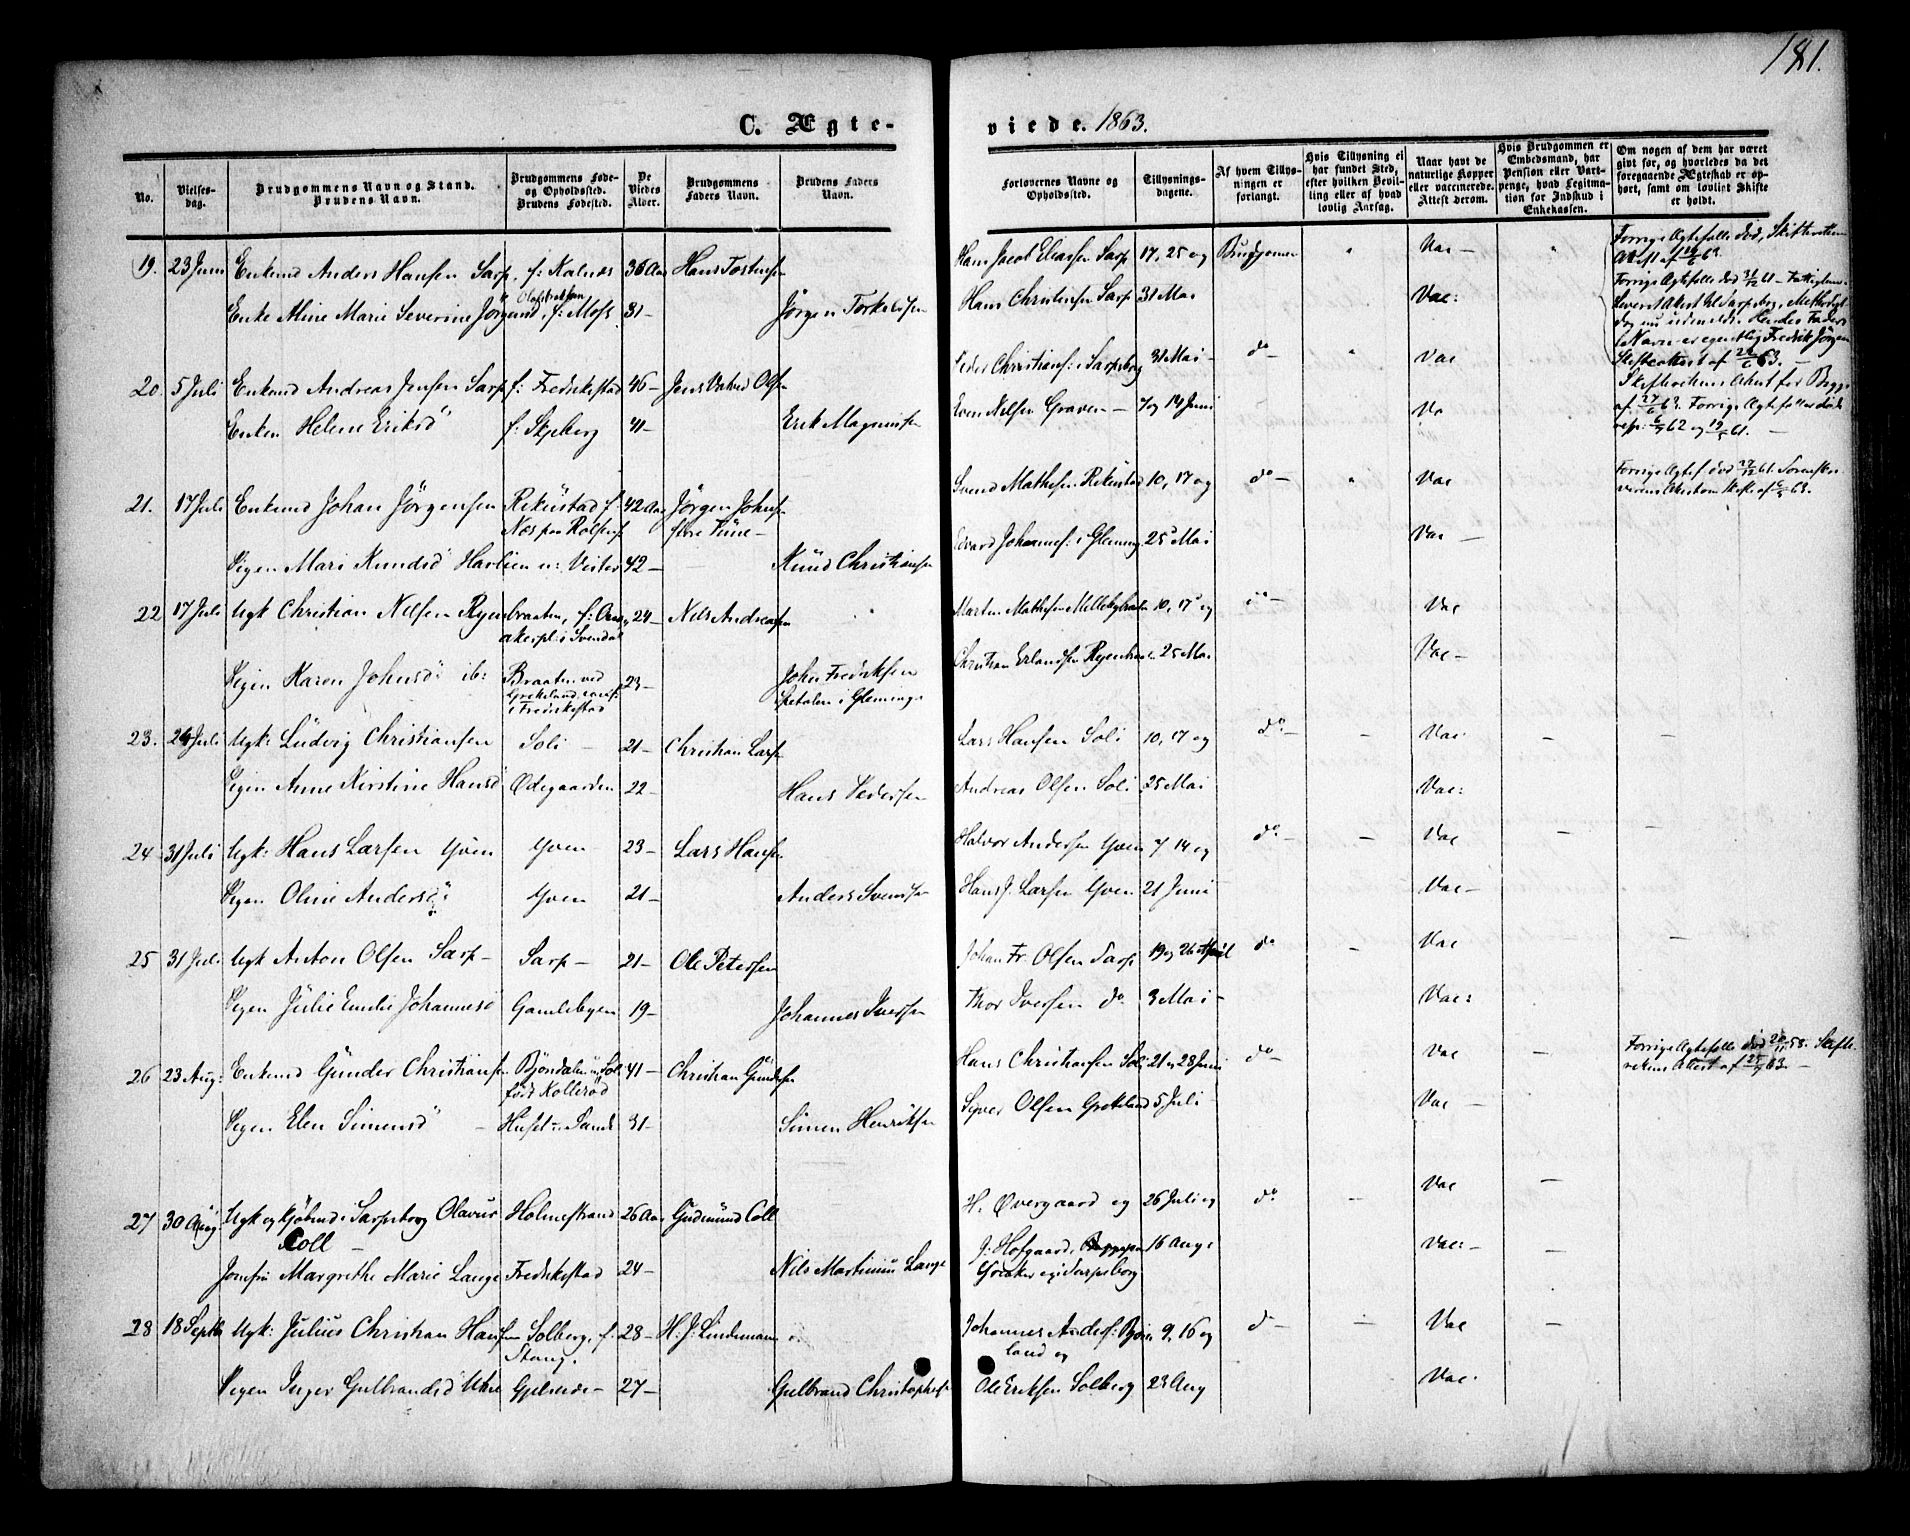 181.
C. Ægte-
viede. 1863.
No.
Vielses-
dag.
Brudgommens Navn og Stand.
Brudens Navn.
Brudgommens Føde-
og Opholdssted.
Brudens Fødested.
De
Viedes
Alder.
Brudgommens
Faders Navn.
Brudens Faders
Navn.
Forlovernes Navne og
Opholdssted.
Tillysnings-
dagene.
Af hvem Tillys-
ningen er
forlangt.
Hvis Tillysning ei
har fundet Sted,
efter hvilken Bevil-
ling eller af hvad
lovlig Aarsag.
Naar havt de
naturlige Kopper
eller vaccinerede.
Attest derom.
Hvis Brudgommen er
Embedsmand, har
Pension eller Vart-
penge, hvad Legitima-
tion for Indskud i
Enkekassen.
Om nogen af dem har været
givt før, og hvorledes da det
foregaaende Ægteskab er op-
hørt, samt om lovligt Skifte
er holdt.
19. 23 Juni Enkemd Anders Hansen Sarp, f: Kalnæs 36 Aar Hans Tostensen Hans Jacob Eliassen Sarp 17, 25 og Brudgommen Vac – Forrige Ægtefælle død, Skifterettens
Attest af
Enke Aline Marie Severine Jørgensd. f: Moss 31 – Jörgen Torkelsen Hans Christensen Sarp 31 Mai Vac:
Forrige Ægtefælle død
Navn er egentlig Fredrik Jörgen
20 5 Juli Enkemd Andreas Jensen Sarp f: Fredrikstad 46 – Jens Olsen Peder Christians: i Sarpsborg 31 Mai – do – Vac
Enken Helene Eriksd f: Skjeberg 41 – Erik Magnussen Even Nilsen Graven – 7 og 14 Juni Va
af 27/6 63. Forrige Ægtefæller døde
resp: 6/9 62 og 19/5 61. –
21. 17 Juli Enkemd Johan Jörgensen Rekustad f: 42 Aar Jörgen Johnsen Svend Mathisen Rekustad 10, 17 og do – Vac Forrige Ægtef. død 27/12 61. Sorenskri-
Næs paa Rolfsø: Tüne – verens Attest om Skifte af 6/5 63.
Pigen Mari Knudsd Havlien u: Vister 42 – Knud Christiansen Edvard Johannes: i Glemmig 25 Mai Vac –
22 17 Juli Ugk Christian Nilsen Ryenbraaten, f: 24 – Nils Andreasen Marten Mathisen Millebybraaten 10, 17 og do – Vac
i Svendal
Pigen Karen Johnsd ib: Braaten ved 23 – John Fredriksen Christian Erlandsen 25 Mai Vac –
Grekeland
i Fredrikstad Spetalen i Glemminge
23. 24 Juli Ugk: Ludvig Christiansen Soli – 21 – Christian Larsen Lars Hansen Soli 10, 17 og do – – Vac – –
Pigen Anne Kirstine Hansd Ødegaarden 22 – Hans Pedersen Andreas Olsen Soli 25 Mai Vac:
24 31 Juli Ugk: Hans Larsen Yven Yven 23 – Lars Hansen Halvor Andersen Yven 7 14 og do – – Vac – –
Pigen Oline Andersd Yven 21 – Anders Svendsen Hans J. Larsen Yven 21 Juni Vac –
25 31 Juli Ugk Anton Olsen Sarp – Sarp – 21 – Ole Petersen Johan Fr. Olsen Sarp 19 og 26 April do – Vac –
Pigen Julie Emilie Johannesd Gamlebyen 19 – Johannes Iversen Thor Iversen do 3 Mai – Vac:
26 23 Aug: Enkemd Günder Christiansen Bjöndalen u: Soli 41 – Christian Gundersen Hans Christiansen Soli 21 og 28 Juni do – Vac – Forrige Ægtefælle død 20/11 58. Skifte-
født Kollerød rettens Attest af 25/7 63. –
Pigen Elen Simensd – Huset u: Sande 31 – Simen Henriksen Syver Olsen Grekeland 5 Juli Vac –
27 30 Aug: Ugk og Kjöbmd i Sarpsborg Olavus Holmestrand 26 Aar Gudmund Coll H. Øvergaard og 26 Juli og do – Vac –
Coll –
Jomfru Margrethe Marie Lange Fredrikstad 24 – Nils Martinius Lange J: Hofgaard, 16 Aug: Vac: – –
Greaker og i Sarpsborg
28 18 Septb Ugk: Julius Christian Hansen Solberg, f. 28 – H. J. Lindemann Johannes Anders: 9, 16 og do – – Vac –
Stang. land og
Pigen Inger Gulbrandsd Gjelsrød – 27 – Gulbrand Christophers: Ole Eriksen Solberg 23 Aug Vac.